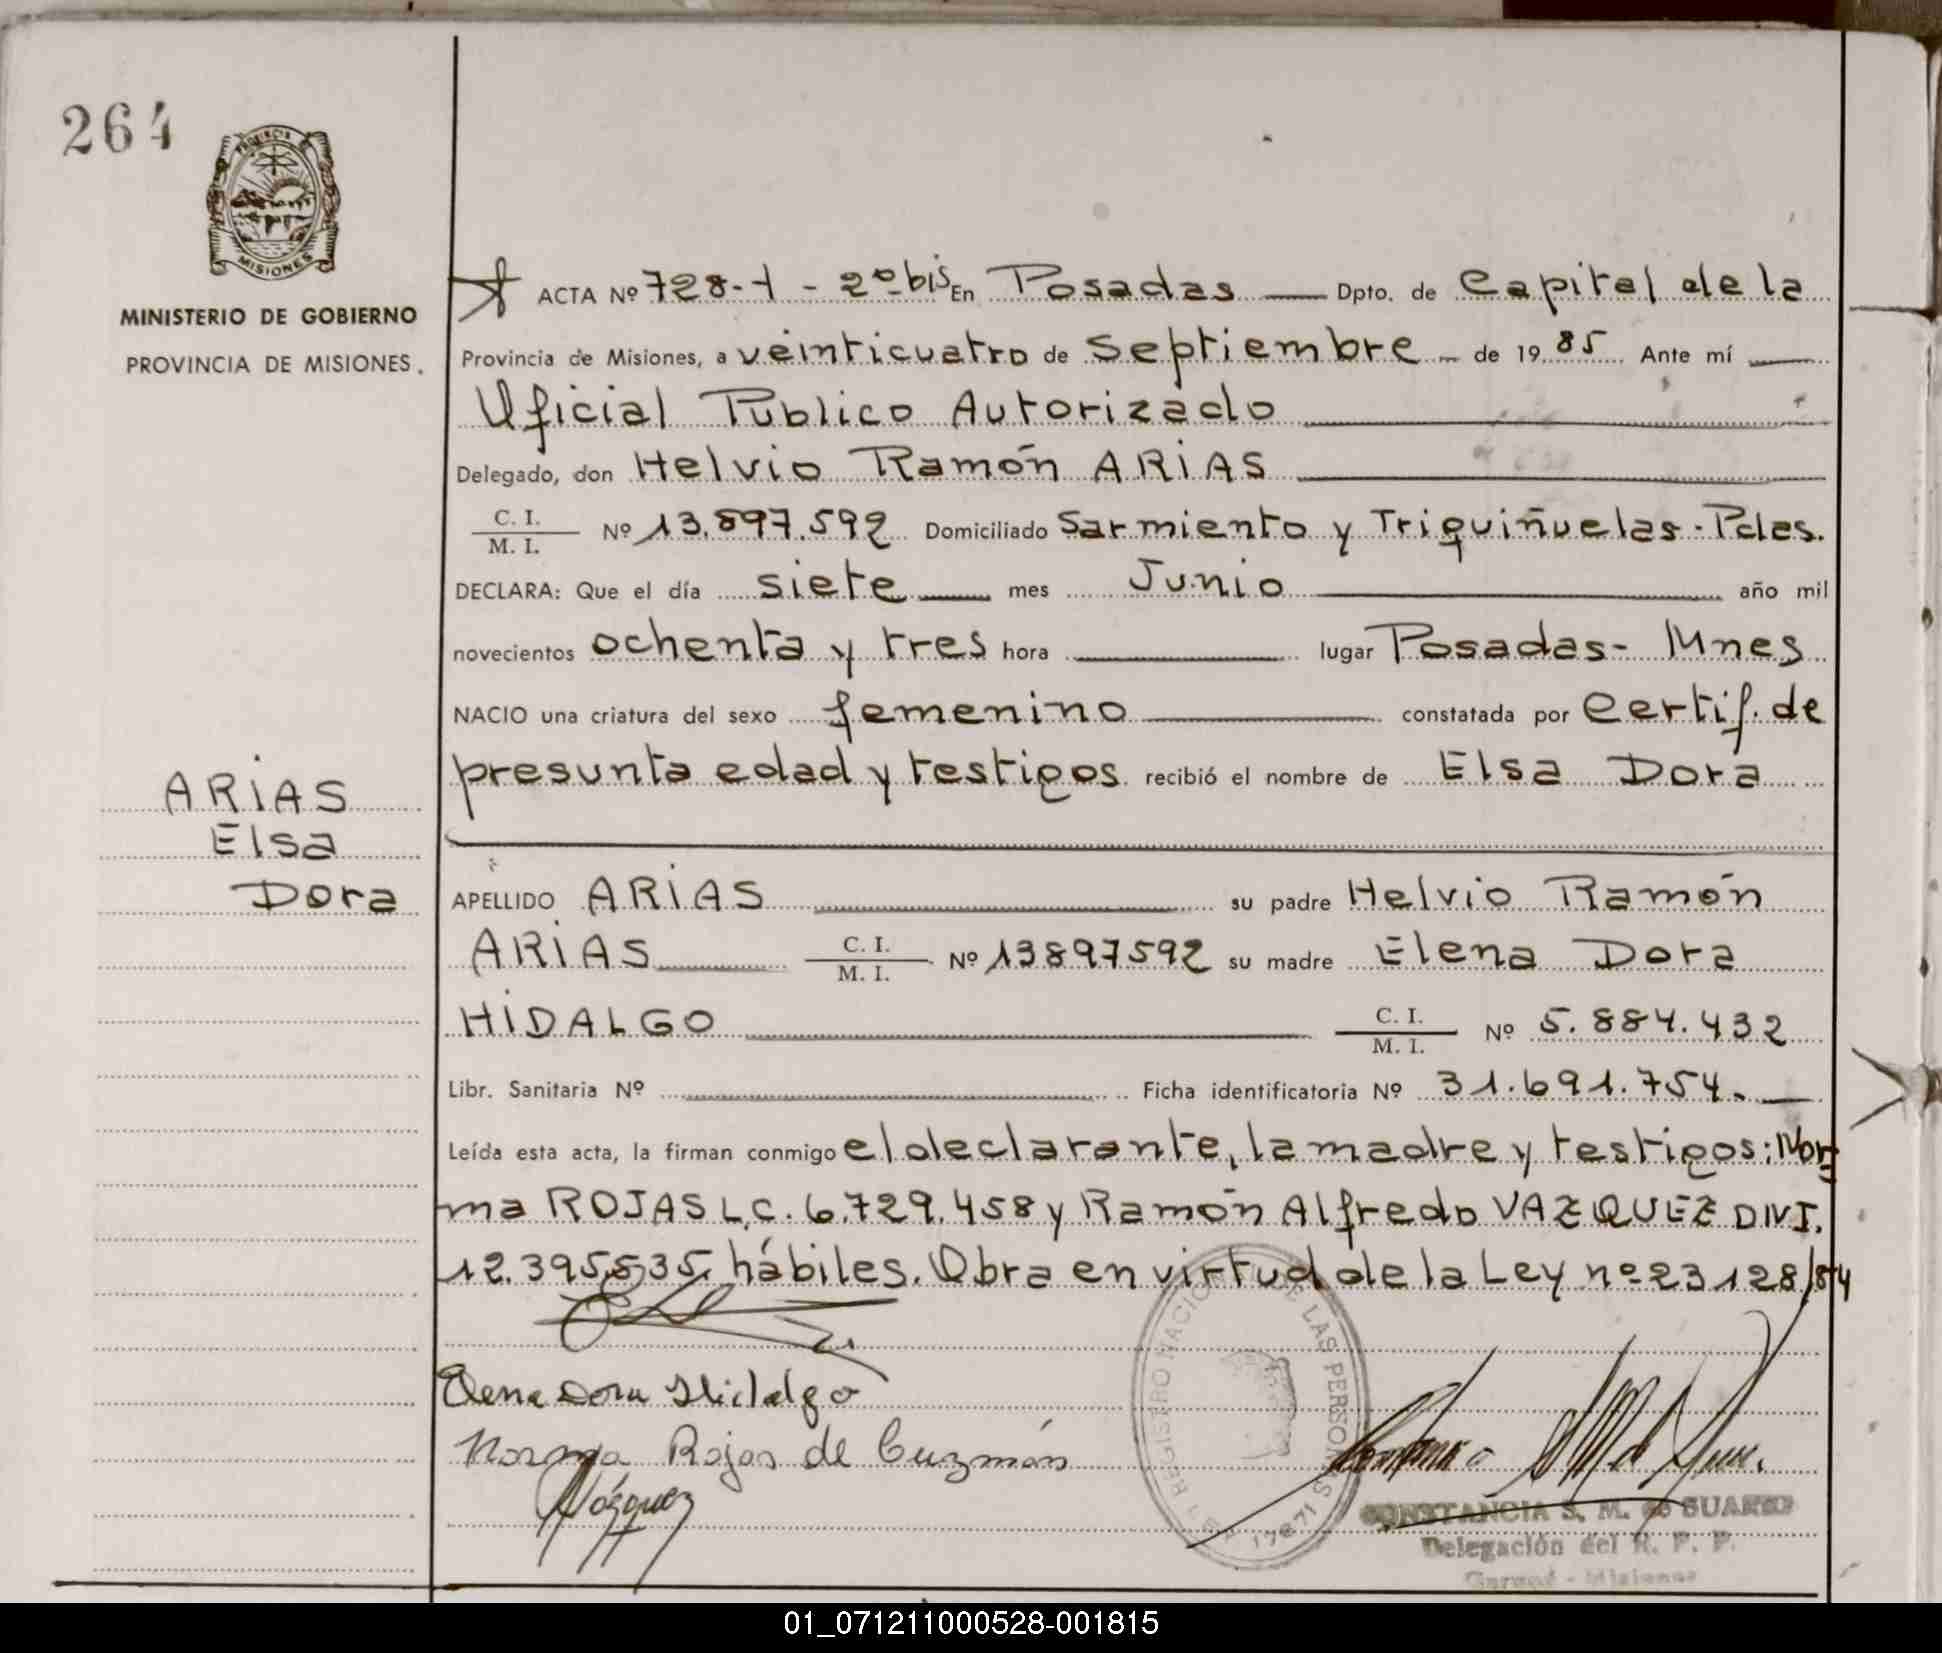 264
PROVINCIA
MISIONES
MINISTERIO DE GOBIERNO
PROVINCIA DE MISIONES.
ARIAS
Elsa
Dora
ACTA Nº 728-1 - 2º bis En Posadas Dpto. de Capital de la
Provincia de Misiones, a veinticuatro de Septiembre de 1985 Ante mí
Oficial Publico Autorizado
Delegado, don Helvio Ramón ARIAS
C. I.
M. I. Nº 13.897.592 Domiciliado Sarmiento y Triquiñuelas - Pdas.
DECLARA: Que el día siete mes Junio año mil
novecientos ochenta y tres hora lugar Posadas - Mnes
NACIO una criatura del sexo femenino constatada por Certif. de
presunta edad y testigos recibió el nombre de Elsa Dora
APELLIDO ARIAS su padre Helvio Ramón
ARIAS C. I. M. I. Nº 13897592 su madre Elena Dora
HIDALGO C. I. M. I. Nº 5.884.432
Libr. Sanitaria Nº Ficha identificatoria Nº 31.691.754.
Leída esta acta, la firman conmigo el declarante, la madre y testigos: Nor-
ma ROJAS L.C. 6.729.458 y Ramón Alfredo VAZQUEZ DNI.
12.395.535, hábiles. Obra en virtud de la Ley nº 23128/84
Elena Dora Hidalgo
Norma Rojas de Guzmán
Vázquez
REGISTRO NACIONAL DE LAS PERSONAS
LEY 17671
CONSTANCIA S. M. de SUAREZ
Delegación del R. P. P.
Garupá - Misiones
01_071211000528-001815